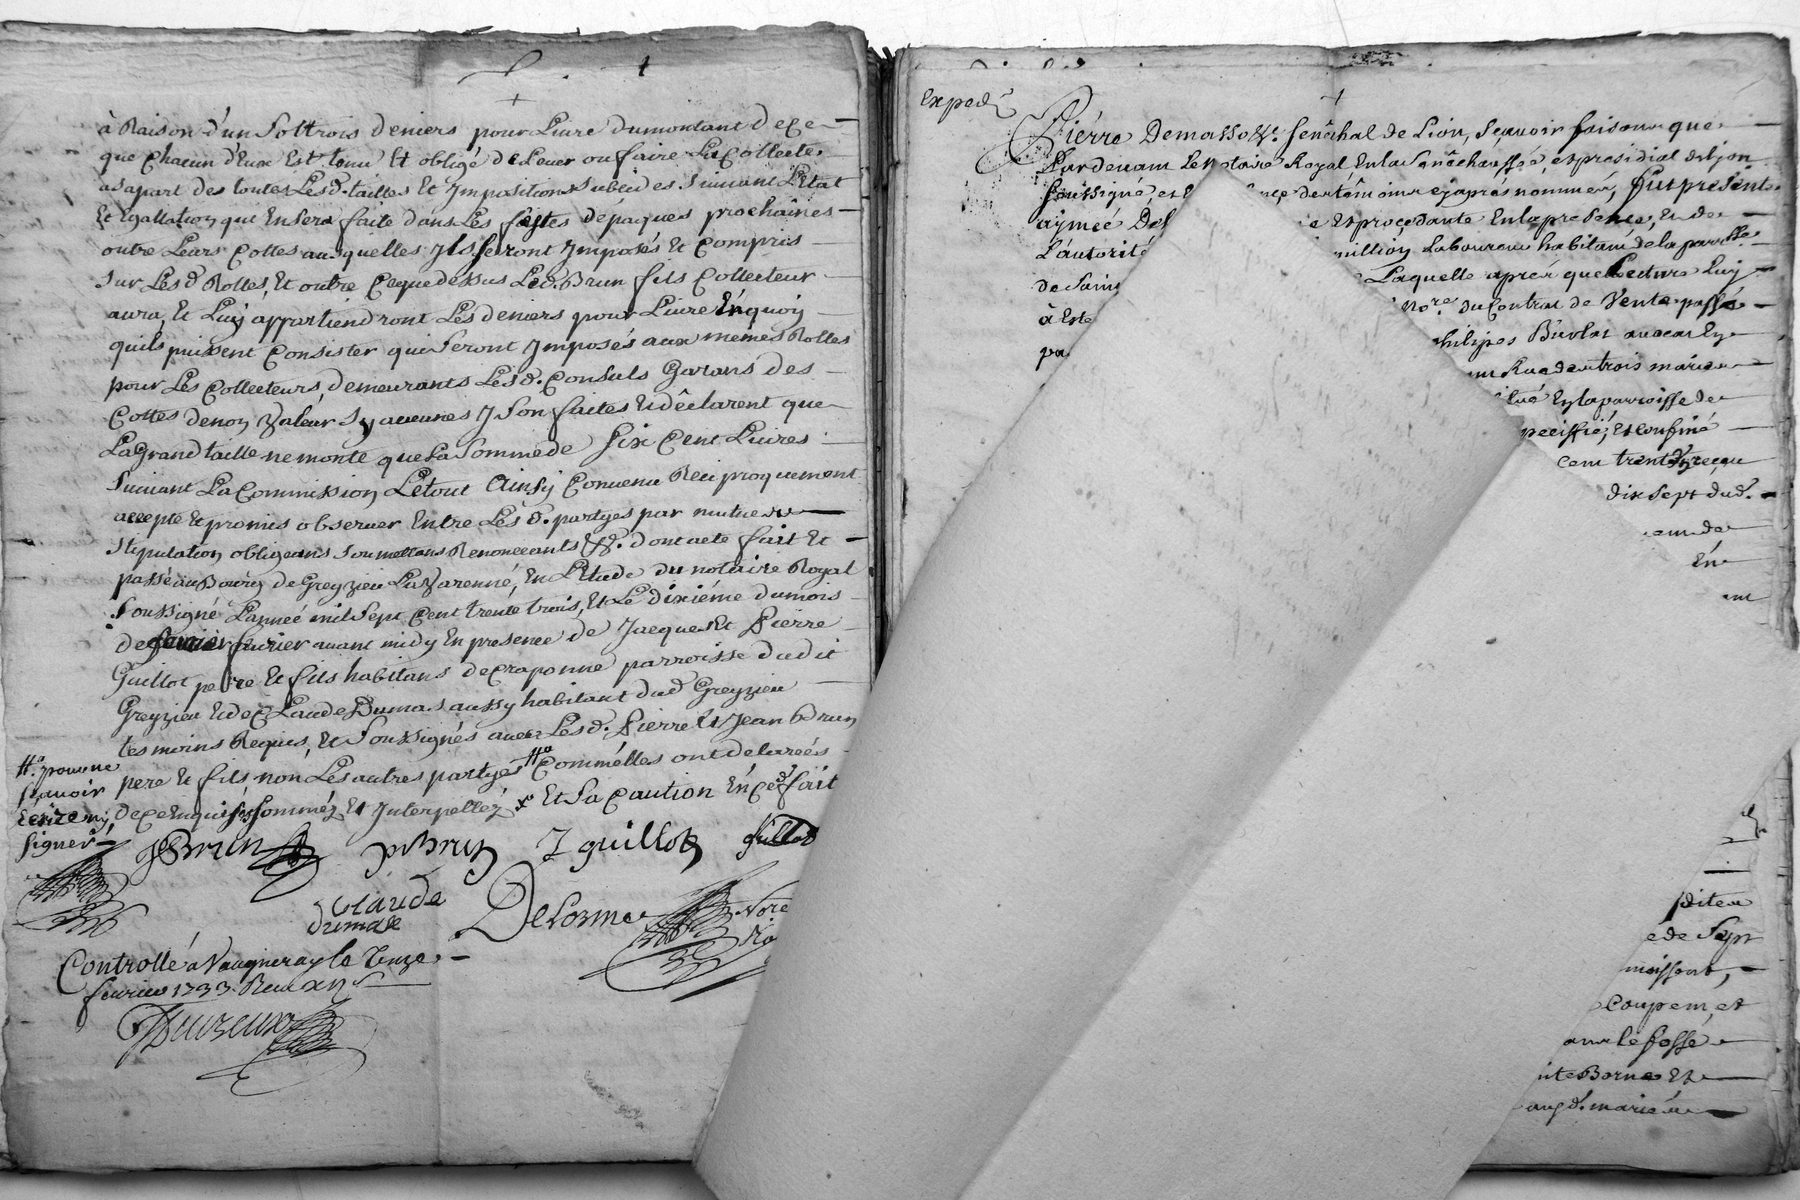 à Raison d'un sol trois deniers pour Livre du montant de ce
que Chacun d'Eux Est tenu Et obligé de Lever ou faire La Collecte
a sa part des toutes Les d. tailles Et Jmpositions subcides suivant L'Etat
Et Egallation que En sera faite dans Les fêstes de pâques prochaines
outre Leurs Cottes ausquelles Jls seront Jmposés Et Compris
sur Les d. Rolles, Et outre Ce que dessus Le d. Brun fils Collecteur
aura, Et Luy appartiendront Les deniers pour Livre En quoy
quils puissent Consister qui seront Jmposés aux mêmes Rolles
pour Les Collecteurs, demeurants Les d. Consuls Garans des
Cottes de non Valeur sy aucunes J son faites Et déclarent que
La Grand taille ne monte que La somme de six Cent Livres
suivant La Commission Le tout Ainsy Convenu Reciproquement
accepte Et promis observer Entre Les d. partyes par mutuelle
stipulation obligeans soumettans Renoncants &. dont acte fait Et
passé au Bourg de Greyzieu La Varenne, En L'Etude du notaire Royal
soussigné L'année mil sept Cent trente trois, Et Le dixième du mois
de fevrier avant midy En presence de Jacques Et Pierre
Guillot pere Et fils habitans de Craponne parroisse dudit
Greyzieu Et de Claude Dumas aussy habitant dud. Greyzieu
tesmoins Requis, Et soussignés avec Les d. Pierre Et Jean Brun
pere Et fils, non Les autres partyes Commelles ont declareés
de ce Enquises sommés Et Interpellez x Et sa Caution En ce d. fait
pouvoir
sçavoir
Ecrire ny
signer
JBrun pBrun J guillot guillot
Claude
dumas
Delorme Nore
Ro
Controllé à Vaugneray le Onze
fevrier 1733. Receu
Expedé
Pierre Demasso &. senéchal de Lion, sçavoir faisons que
Pardevant Le Notaire Royal En la Senéchaussée et presidial de Lyon
soussigné, et En de têmoins cy apres nommés, fut presente
aymée Del Et procedante En la presence, Et de
L'autorité million Laboureur habitant de la parroisse
de Saint Laquelle apres que Lecture Luy
à Este Nore. du Contrat de Vente passé
pa philipes Burlat avocat En
Rue des trois maries
situé En la parroisse de
specifié; Et confiné
cent trente
dix sept dud.
de
En
ent
dite
de Sept
moissons,
coupem, et
le fossé
Borne Et
aud. s. marie